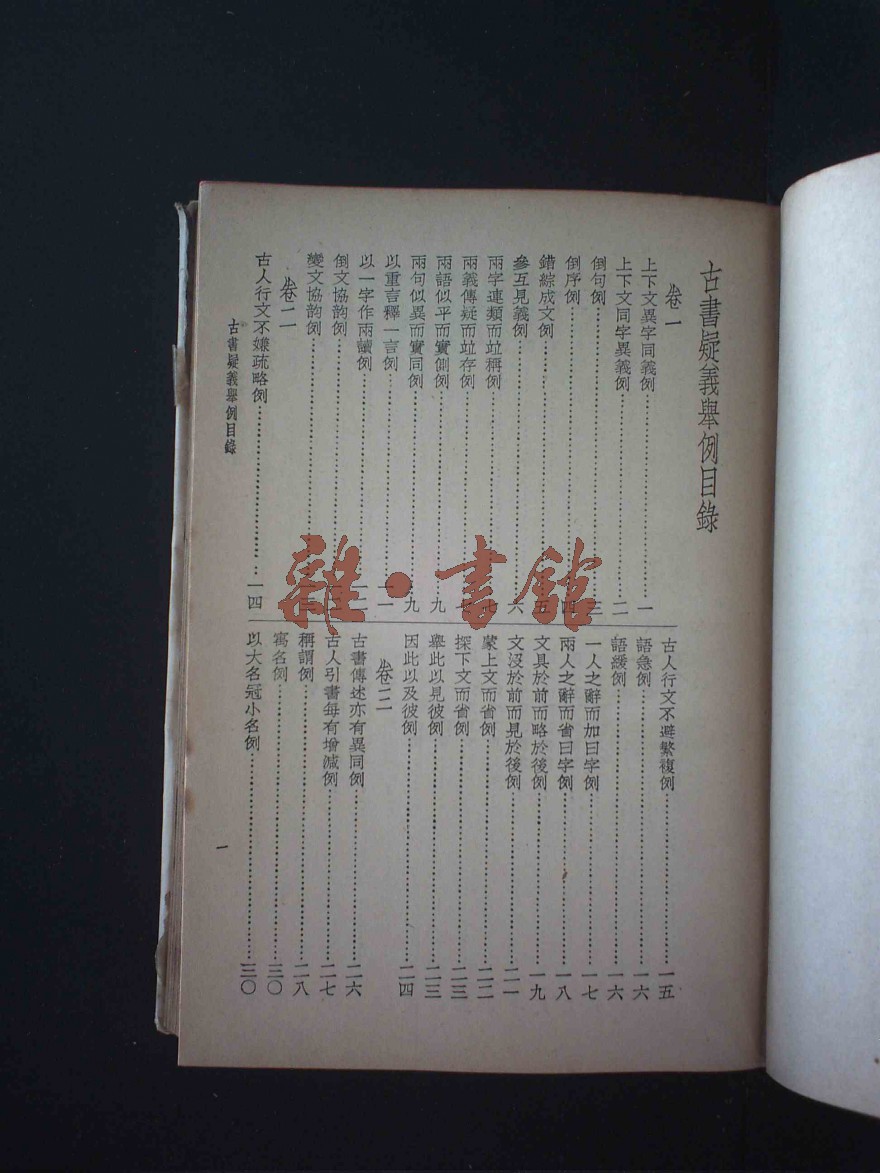 古書疑義舉例目錄
卷一
上下文異字同義例……一
上下文同字異義例……二
倒句例……三
倒序例……四
錯綜成文例……五
參互見義例……六
兩字連類而竝稱例……七
兩義傳疑而竝存例……七
兩語似平而實側例……九
兩句似異而實同例……九
以重言釋一言例……一一
以一字作兩讀例……
倒文協韵例……
變文協韵例……
卷二
古人行文不嫌疏略例……一四
古人行文不避繁複例……一五
語急例……一六
語緩例……一六
一人之辭而加曰字例……一七
兩人之辭而省曰字例……一八
文具於前而略於後例……一九
文沒於前而見於後例……二一
蒙上文而省例……二二
探下文而省例……二三
舉此以見彼例……二三
因此以及彼例……二四
卷三
古書傳述亦有異同例……二六
古人引書每有增減例……二七
稱謂例……二八
寓名例……三〇
以大名冠小名例……三〇
古書疑義舉例目錄
一
雜·書館